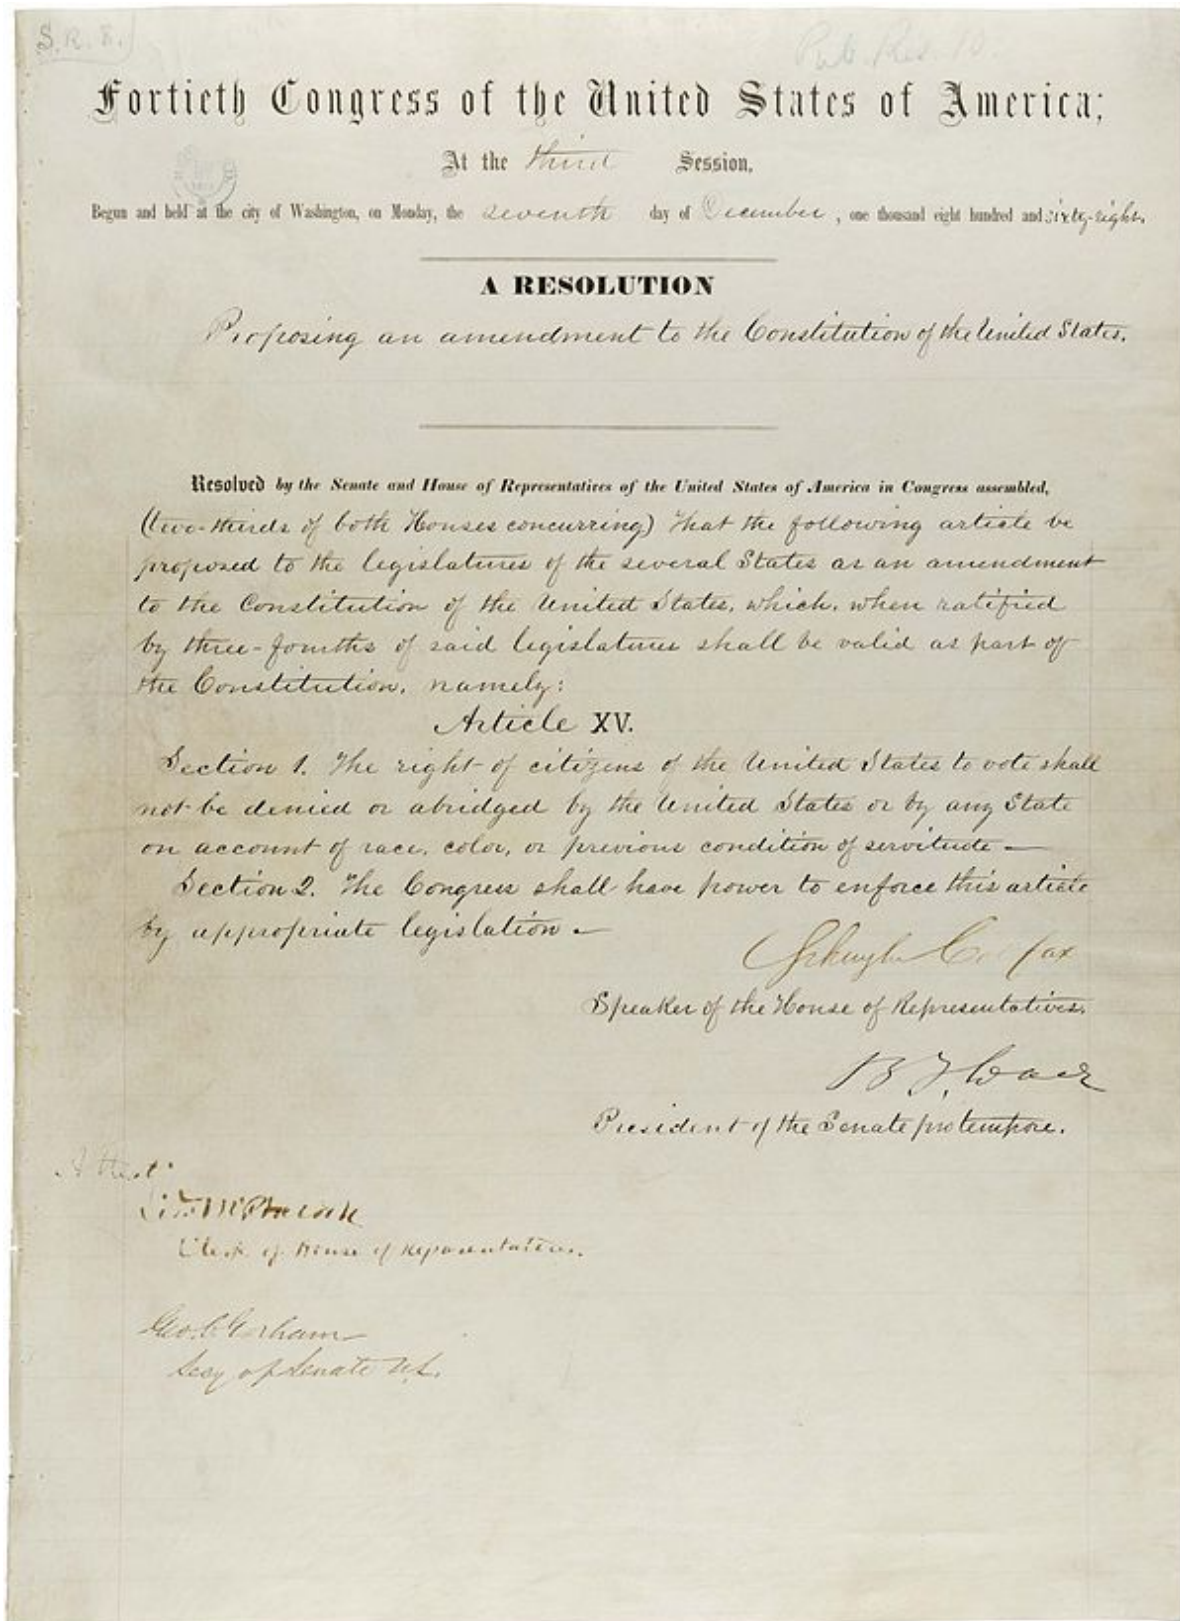 S.R. 8.
Pub. Res. 10.
Fortieth Congress of the United States of America;
At the third Session,
Begun and held at the city of Washington, on Monday, the seventh day of December, one thousand eight hundred and sixty-eight.
A RESOLUTION
Proposing an amendment to the Constitution of the United States.
Resolved by the Senate and House of Representatives of the United States of America in Congress assembled,
(two-thirds of both Houses concurring) That the following article be
proposed to the legislatures of the several States as an amendment
to the Constitution of the United States, which, when ratified
by three-fourths of said legislatures shall be valid as part of
the Constitution, namely:
Article XV.
Section 1. The right of citizens of the United States to vote shall
not be denied or abridged by the United States or by any State
on account of race, color, or previous condition of servitude—
Section 2. The Congress shall have power to enforce this article
by appropriate legislation—
Schuyler Colfax
Speaker of the House of Representatives.
B F Wade
President of the Senate pro tempore.
Attest:
McPherson
Clerk of House of Representatives.
Geo. C Gorham
Secy of Senate U.S.